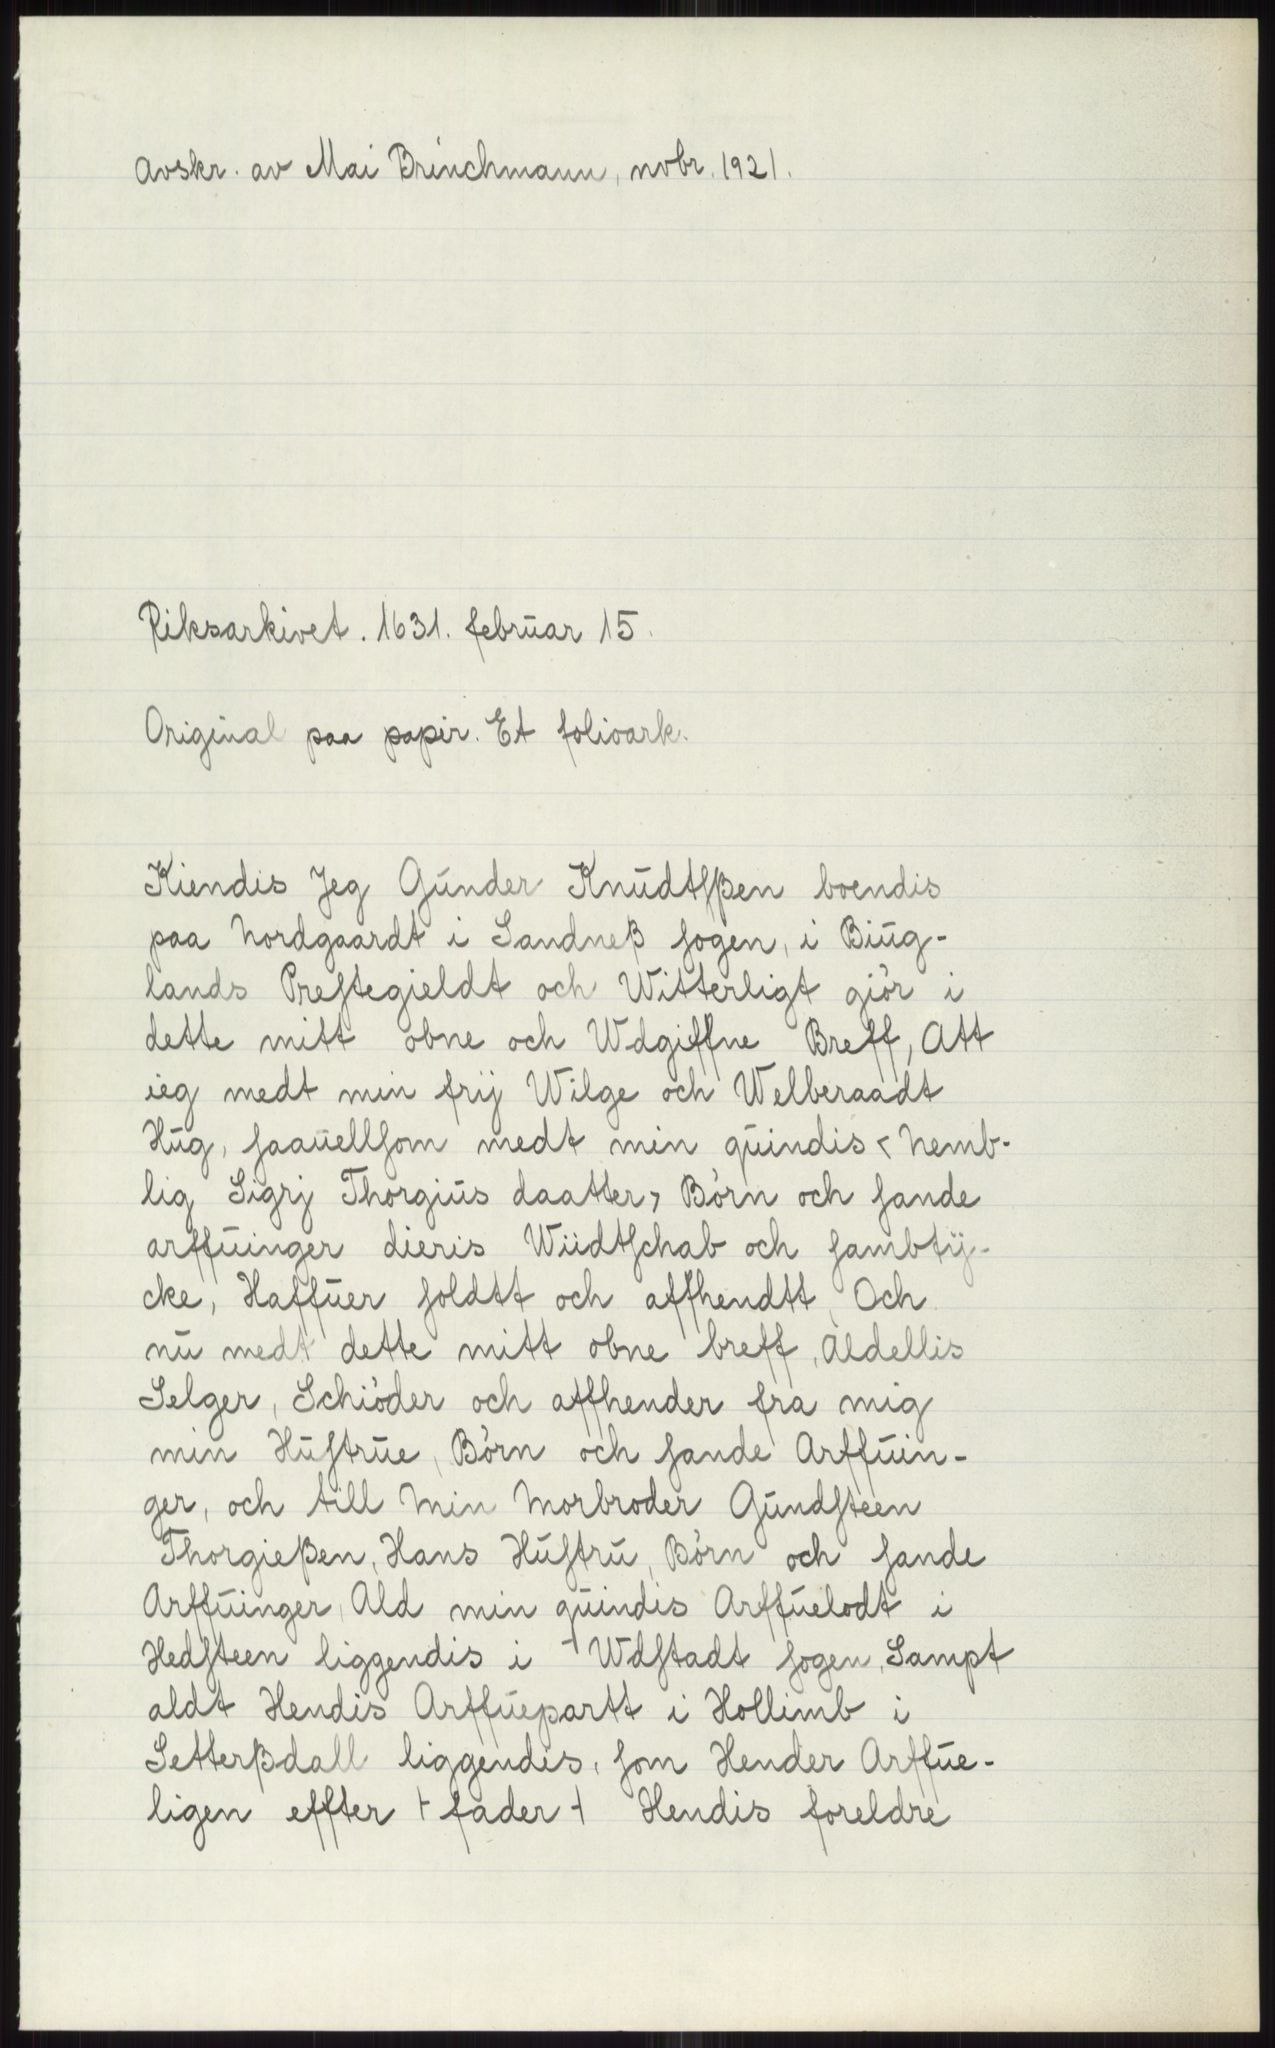 Avskr. av Mai Brinchmann, nvbr. 1921.
Riksarkivet. 1631. februar 15.
Original paa papir. Et folioark.
Kiendis Jeg Gúnder Knúdtſßen boendis
paa Nordgaardt i Sandneß ſogen, i Biúg-
lands Preſtegieldt och Witterligt giör i
dette mitt obne och Wdgiffne Breff, Att
ieg medt min frij Wilge och Welberaadt
Húg, ſaaúellſom medt min qúindis < Nemb-
lig Sigrj Thorgiús daatter, Börn och ſande
arffúinger dieris Wiidtſchab och ſambtÿ-
cke, Haffúer ſoldtt och affhendtt, Och
nú medt dette mitt obne breff, Aldellis
Selger, Schiöder och affhender fra mig
min Húſtrúe, Börn och ſande Arffúin-
ger, och till Min Morbroder Gúndſteen
Thorgießen, Hans Húſtrú, Börn och ſande
Arffúinger, Ald min qúindis Arffúelodt i
Hedſteen liggendis i Wdſtadt ſogen, Sampt
aldt Hendis Arffúepartt i Hollimb i
Setterßdall liggendis, ſom Hender Arffúe-
ligen effter + fader + Hendis foreldre